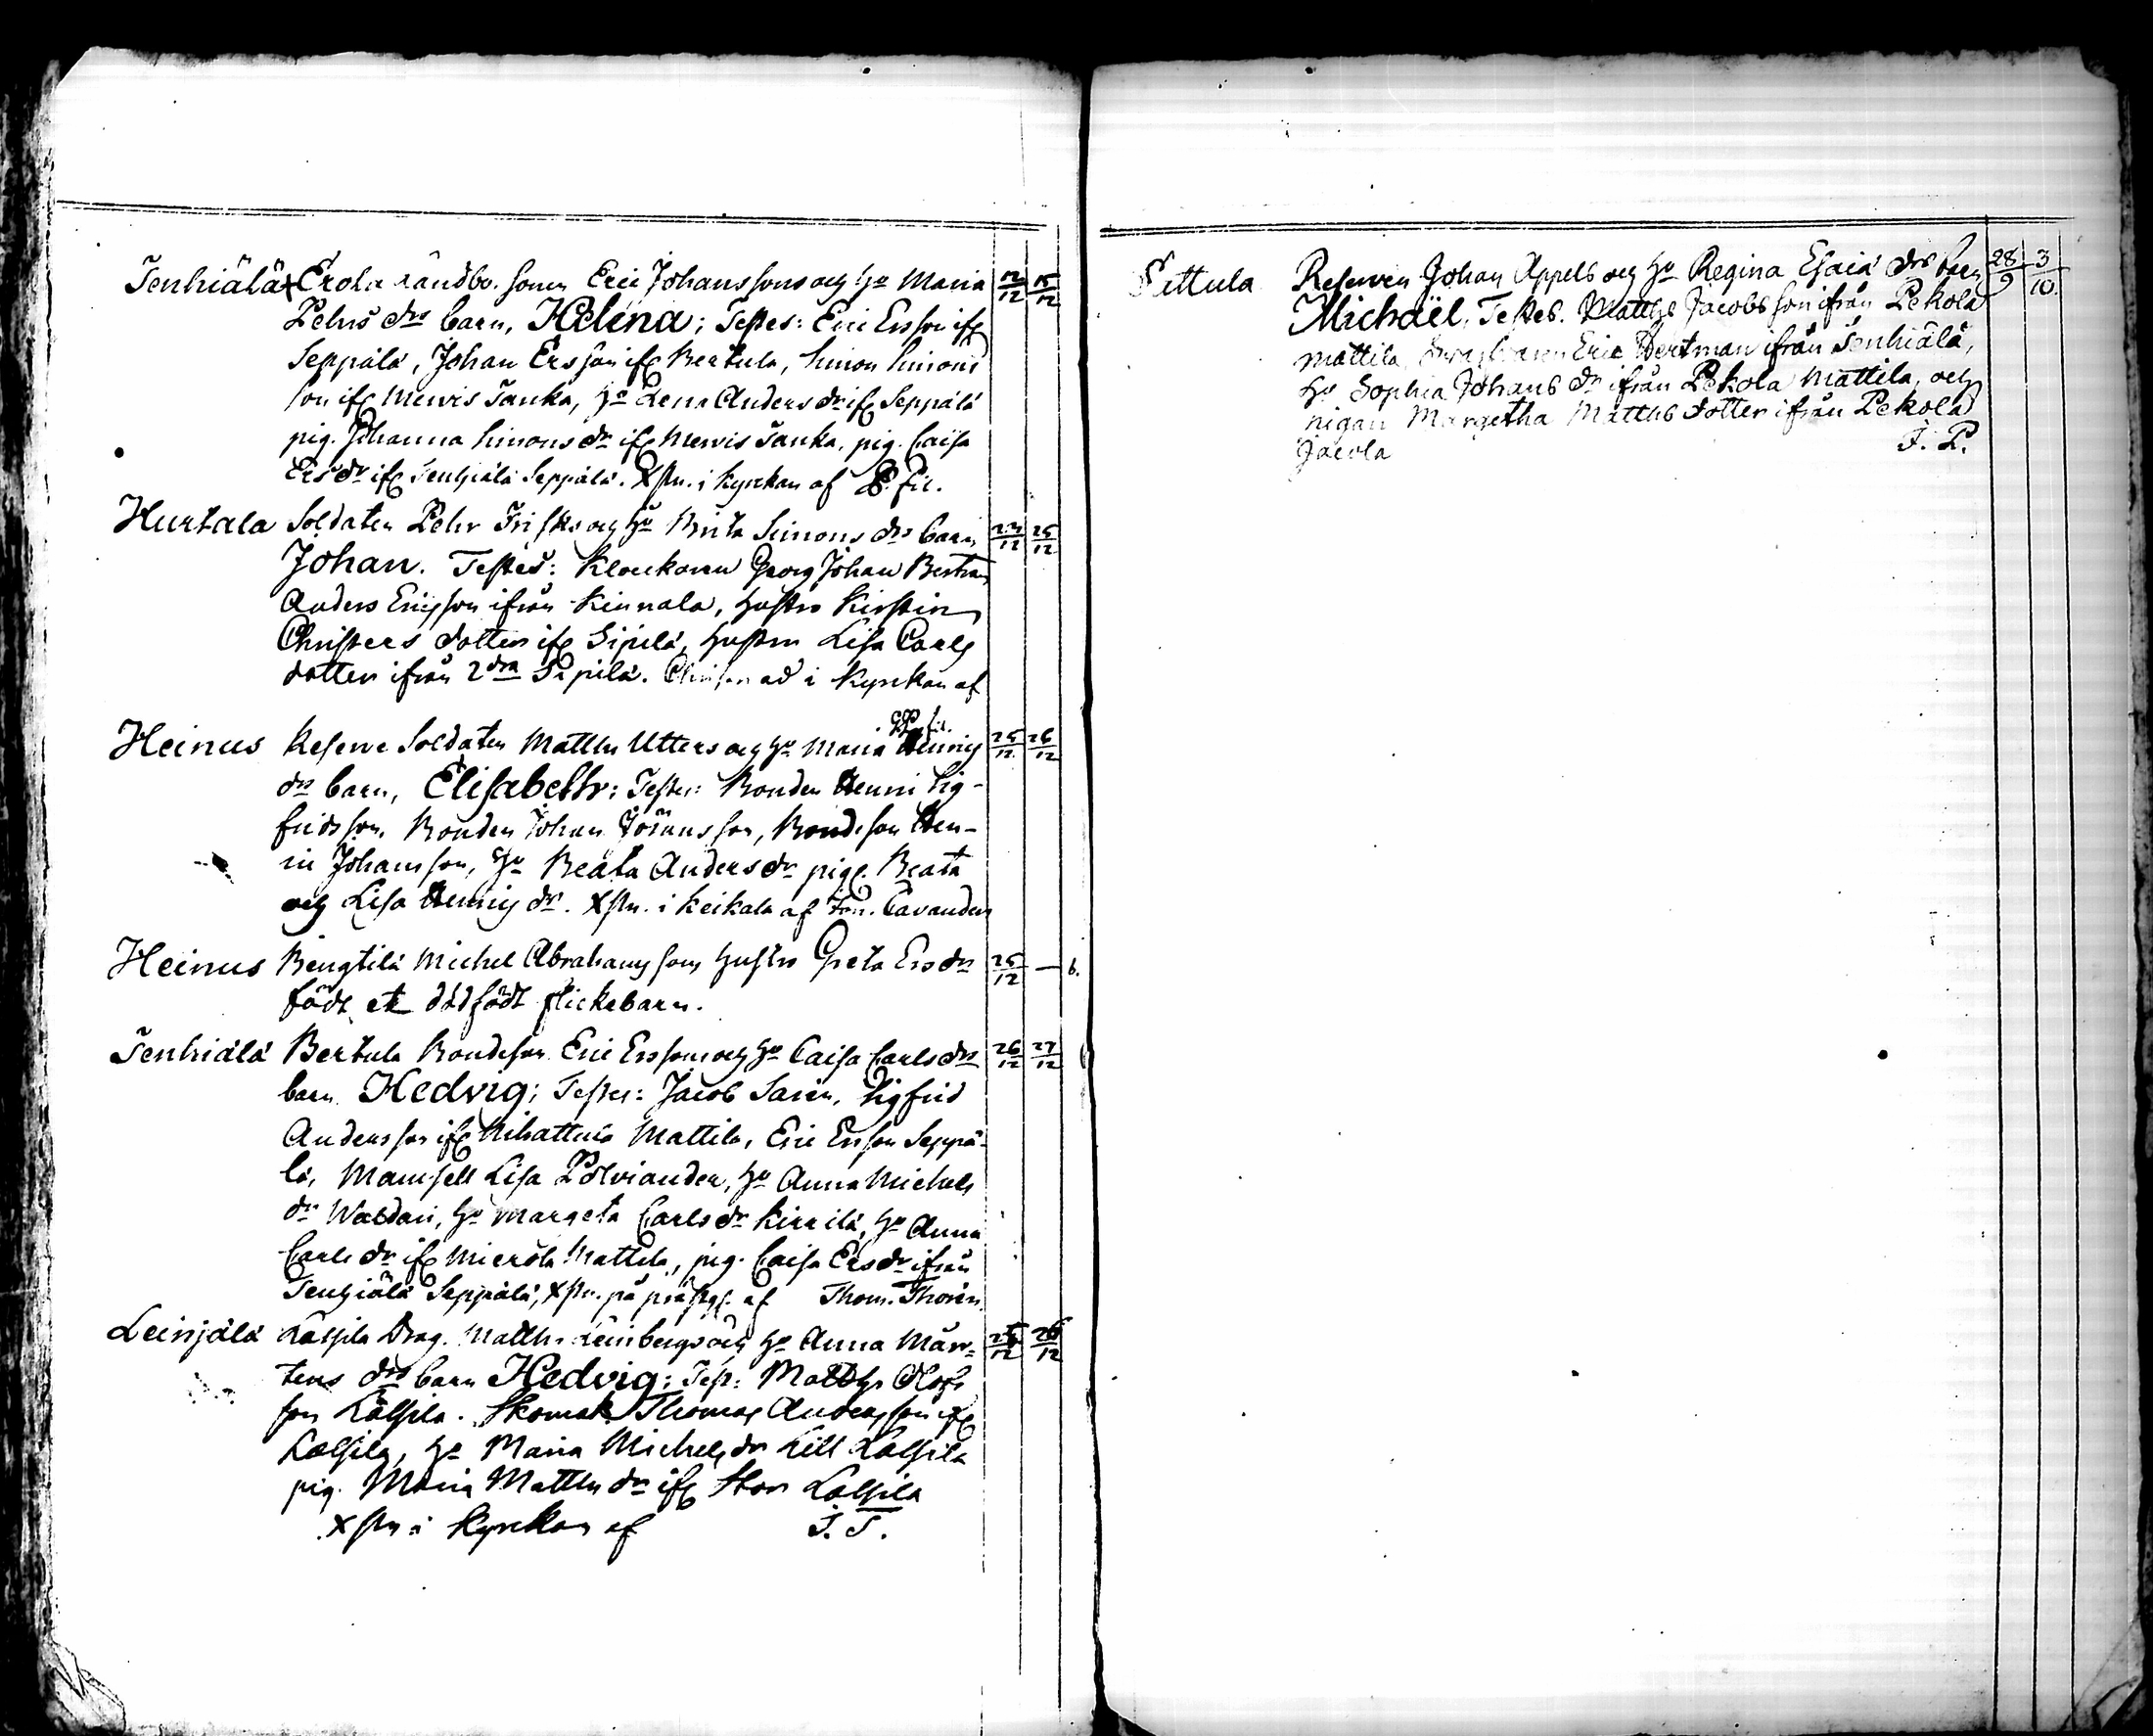 Tenhiälä + Erola Landbo. sonen Eric Johanssons och Ho Maria 12/12 15/12
Pehrs drs barn, Helena; Testes: Eric Ersson ifr
Seppälä, Johan Ersson ifr Bertula, Simon Simons
son ifr Mervis Tanka, Ho Lena Anders dr ifr Seppälä
pig. Johanna Simons dr ifr Mervis Tanka, pig. Caisa
Ers dr ifr Tenhiälä Seppälä. Xstn. i Kyrckan af
Hurtala Soldaten Pehr Frisks och Ho Brita Simons drs barn 23/12 25/12
Johan. Testes: Klockaren Georg Johan
Anders Ericsson ifrån Kinnala, hustro Kirstin
Christers dotter ifr Sipilä, hustru Lisa Carls
dotter ifrån 2dra Sipilä. Christnad i Kyrckan af
Heinus Reserve Soldaten Matths Utters och Ho Maria Henrics 25/12 26/12
drs barn, Elisabeth: Testes: Bonden Henric Sig-
fridsson, Bonden Johan Jöransson, Bondeson Hen-
ric Johansson, Ho Beata Anders dr pig. Beata
och Lisa Henrics dr. Xstn. i Keikala af Cavander
Heinus Bengtilä Michel Abrahamssons hustro Greta Ers dr 25/12 — 6.
födt et dödfödt flickebarn.
Tenhiälä Bertula Bondeson Eric Erssons och Ho Caisa Carls drs 26/12 27/12
barn Hedvig; Testes: Jacob Sarén, Sigfrid
Andersson ifr Rihattula Mattila, Eric Ersson Seppä-
lä, Mamsell Lisa Pölviander, Ho Anna Michels
dr Waldari, Ho Margeta Carls dr Kirrilä, Ho Anna
Carls dr ifr Mierola Mattila, pig. Caisa Ers dr ifrån
Tenhiälä Seppälä, Xstn. på prästg. af Thom. Thorén.
Leinjälä Lassila Drag. Matths Leinbergs och Ho Anna Mår- 25/12 26/12
tens drs barn Hedvig: Test: Matths Olofs
son Lassila. Skomak. Thomas Andersson ifr
Lassila, Ho Maria Michels dr Lill Lassila
pig. Maria Matths dr ifr Stor Lassila
Xstn i Kyrckan af J. T.
Pettula Reserven Johan Appels och Ho Regina Esaiæ drs barn 28/9 3/10
Michaël, Testes. Matths Jacobsson ifrån Pekola
Mattila, Eric Hertman ifrån Tenhiälä,
Ho Sophia Johans dr ifrån Pekola Mattila, och
Pigan Margetha Matths dotter ifrån Pekola
Jacola J. P.